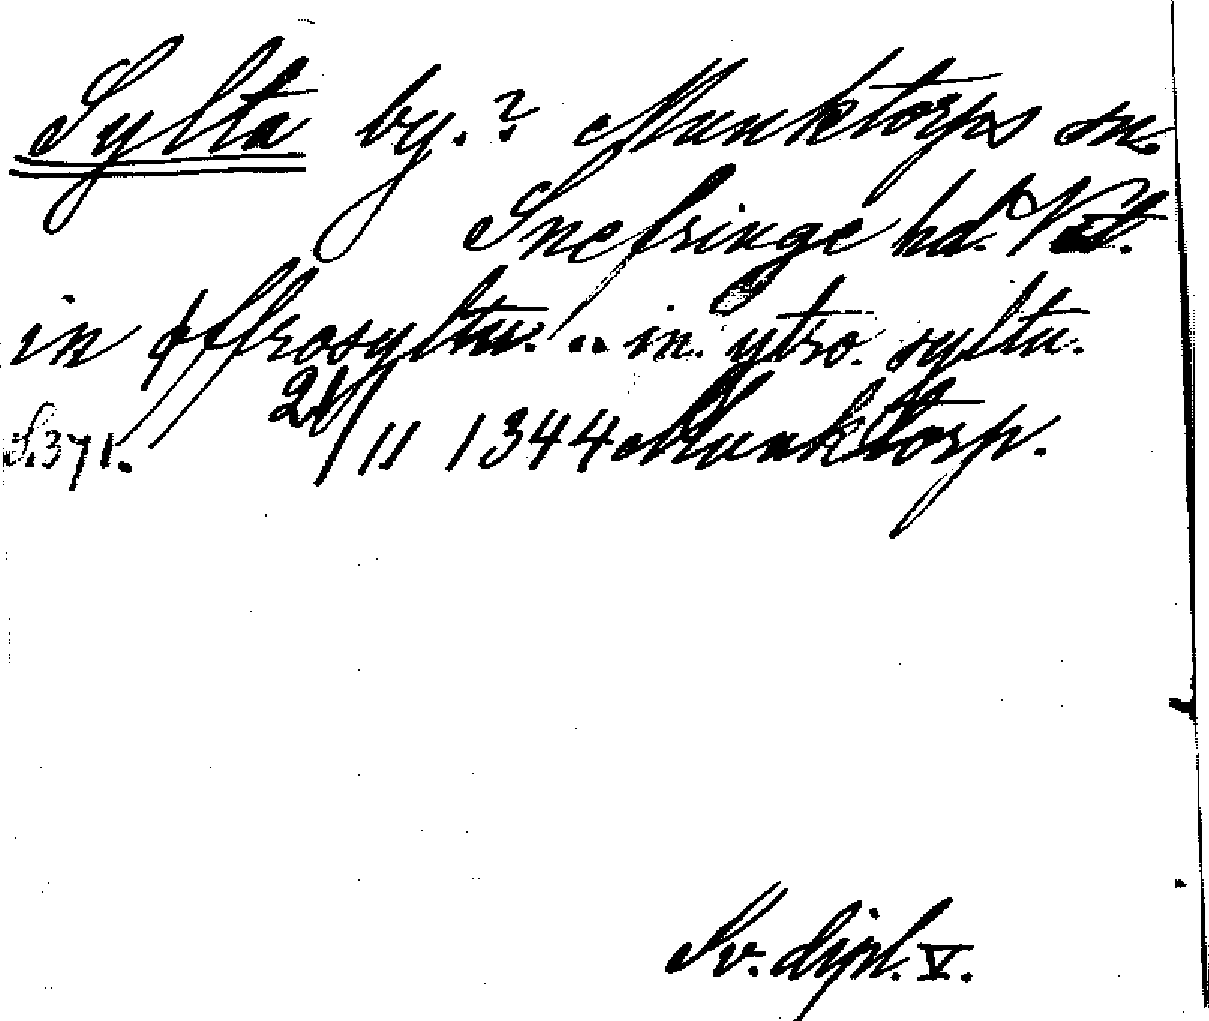 Sylta by.? Munktorps sn.
Snefringe hd. Vstl.
in øffrosylta. .. in. ytro. sylta.
S.371. 21/11 1344 Munktorp.
Sv. dipl. V.